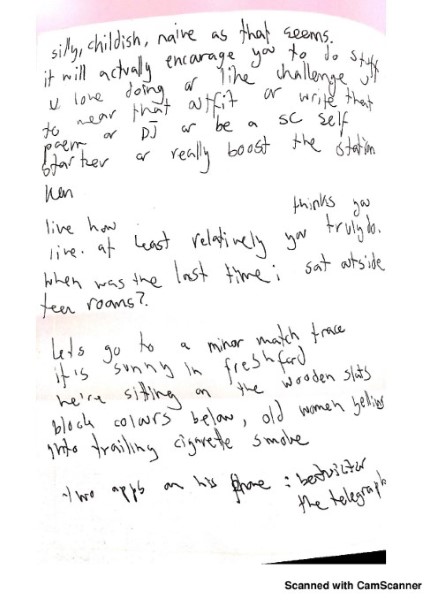 silly, childish, naive as that seems.
it will actually encourage you to do stuff
u love doing or like challenge urself
to wear that outfit or write that
poem or DJ or be a SC self
starter or really boost the station
thinks you
live how
live. at least relatively you truly do.
when was the last time i sat outside
tea rooms?
Lets go to a minor match
it's sunny in freshford
he're sitting on the wooden slats
block colours below, old women yelling
into trailing cigarete smoke
two apps on his phone :
the telegraph
Scanned with CamScanner